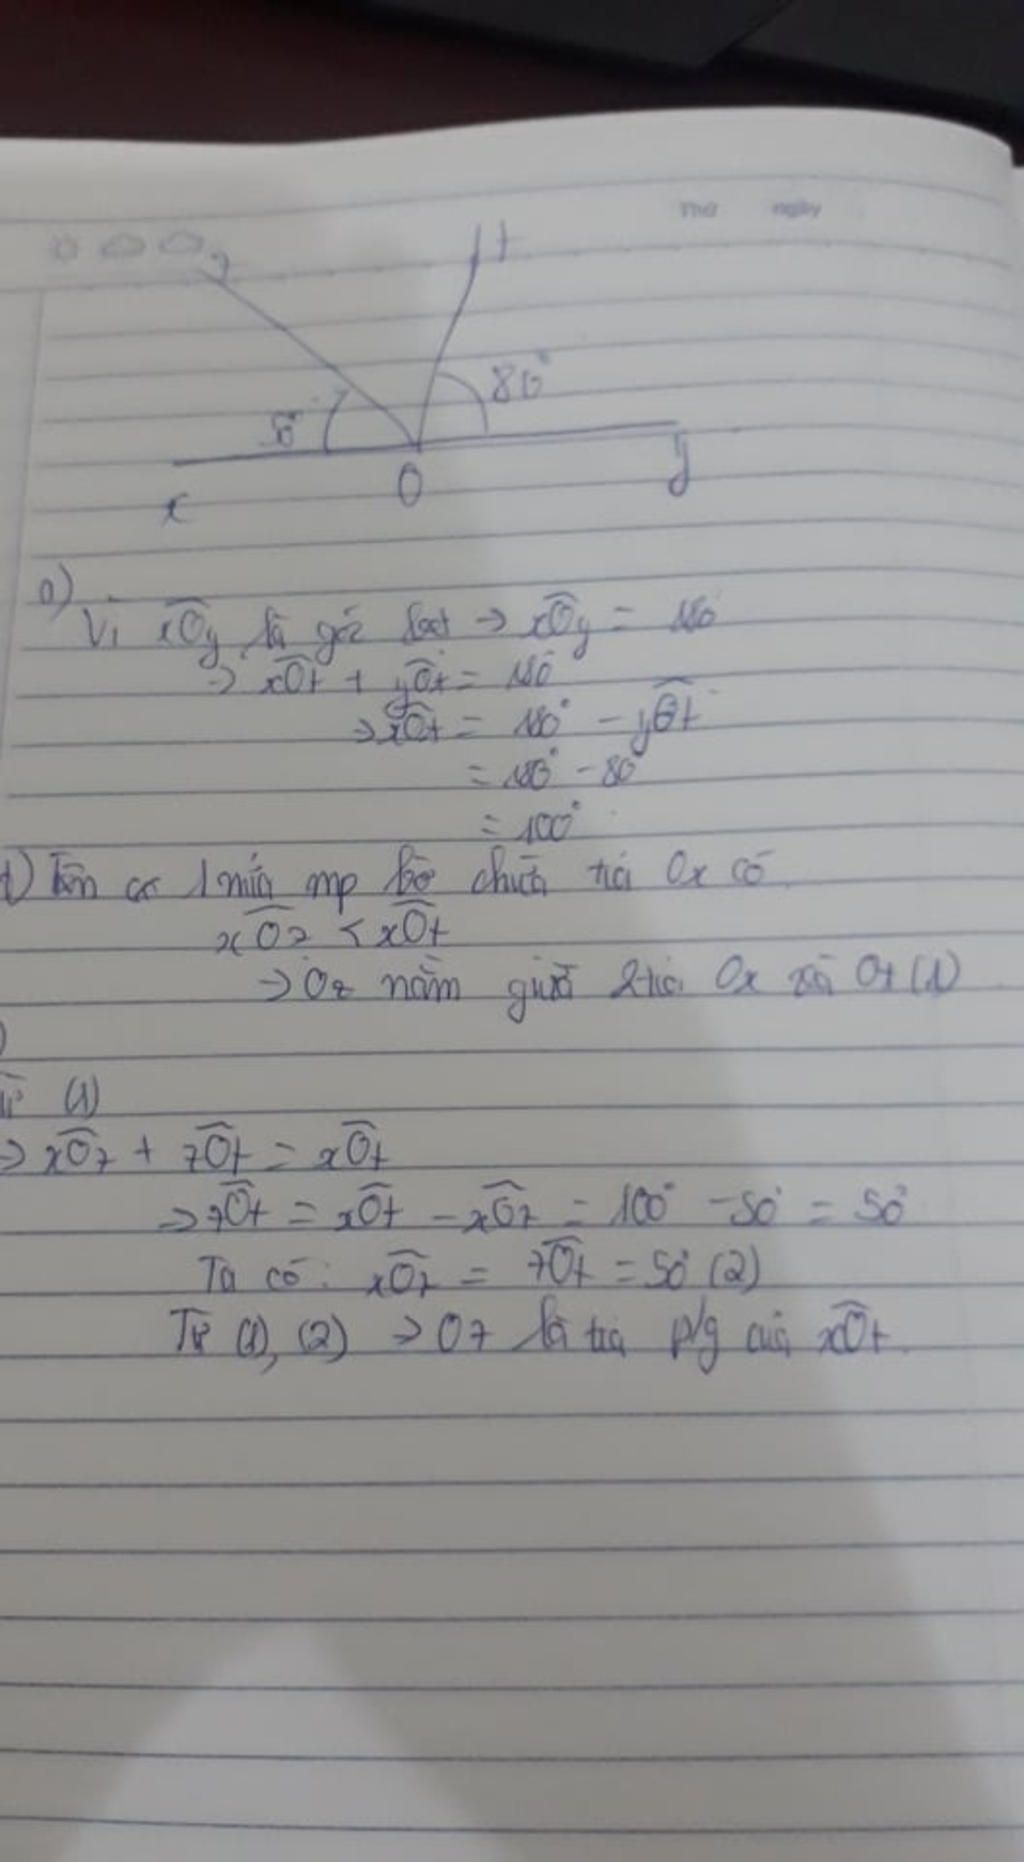 Thứ ngày
z t
50° 80°
x O y
a)
Vì xÔy là góc bẹt → xÔy = 180°
→ xÔt + yÔt = 180°
→ xÔt = 180° - yÔt
= 180° - 80°
= 100°
Trên cx 1 nửa mp bờ chứa tia Ox có
xÔz < xÔt
→ Oz nằm giữa 2 tia Ox và Ot (1)
Từ (1)
→ xÔz + zÔt = xÔt
→ zÔt = xÔt - xÔz = 100° - 50° = 50°
Ta có: xÔz = zÔt = 50° (2)
Từ (1), (2) → Oz là tia p/g của xÔt.